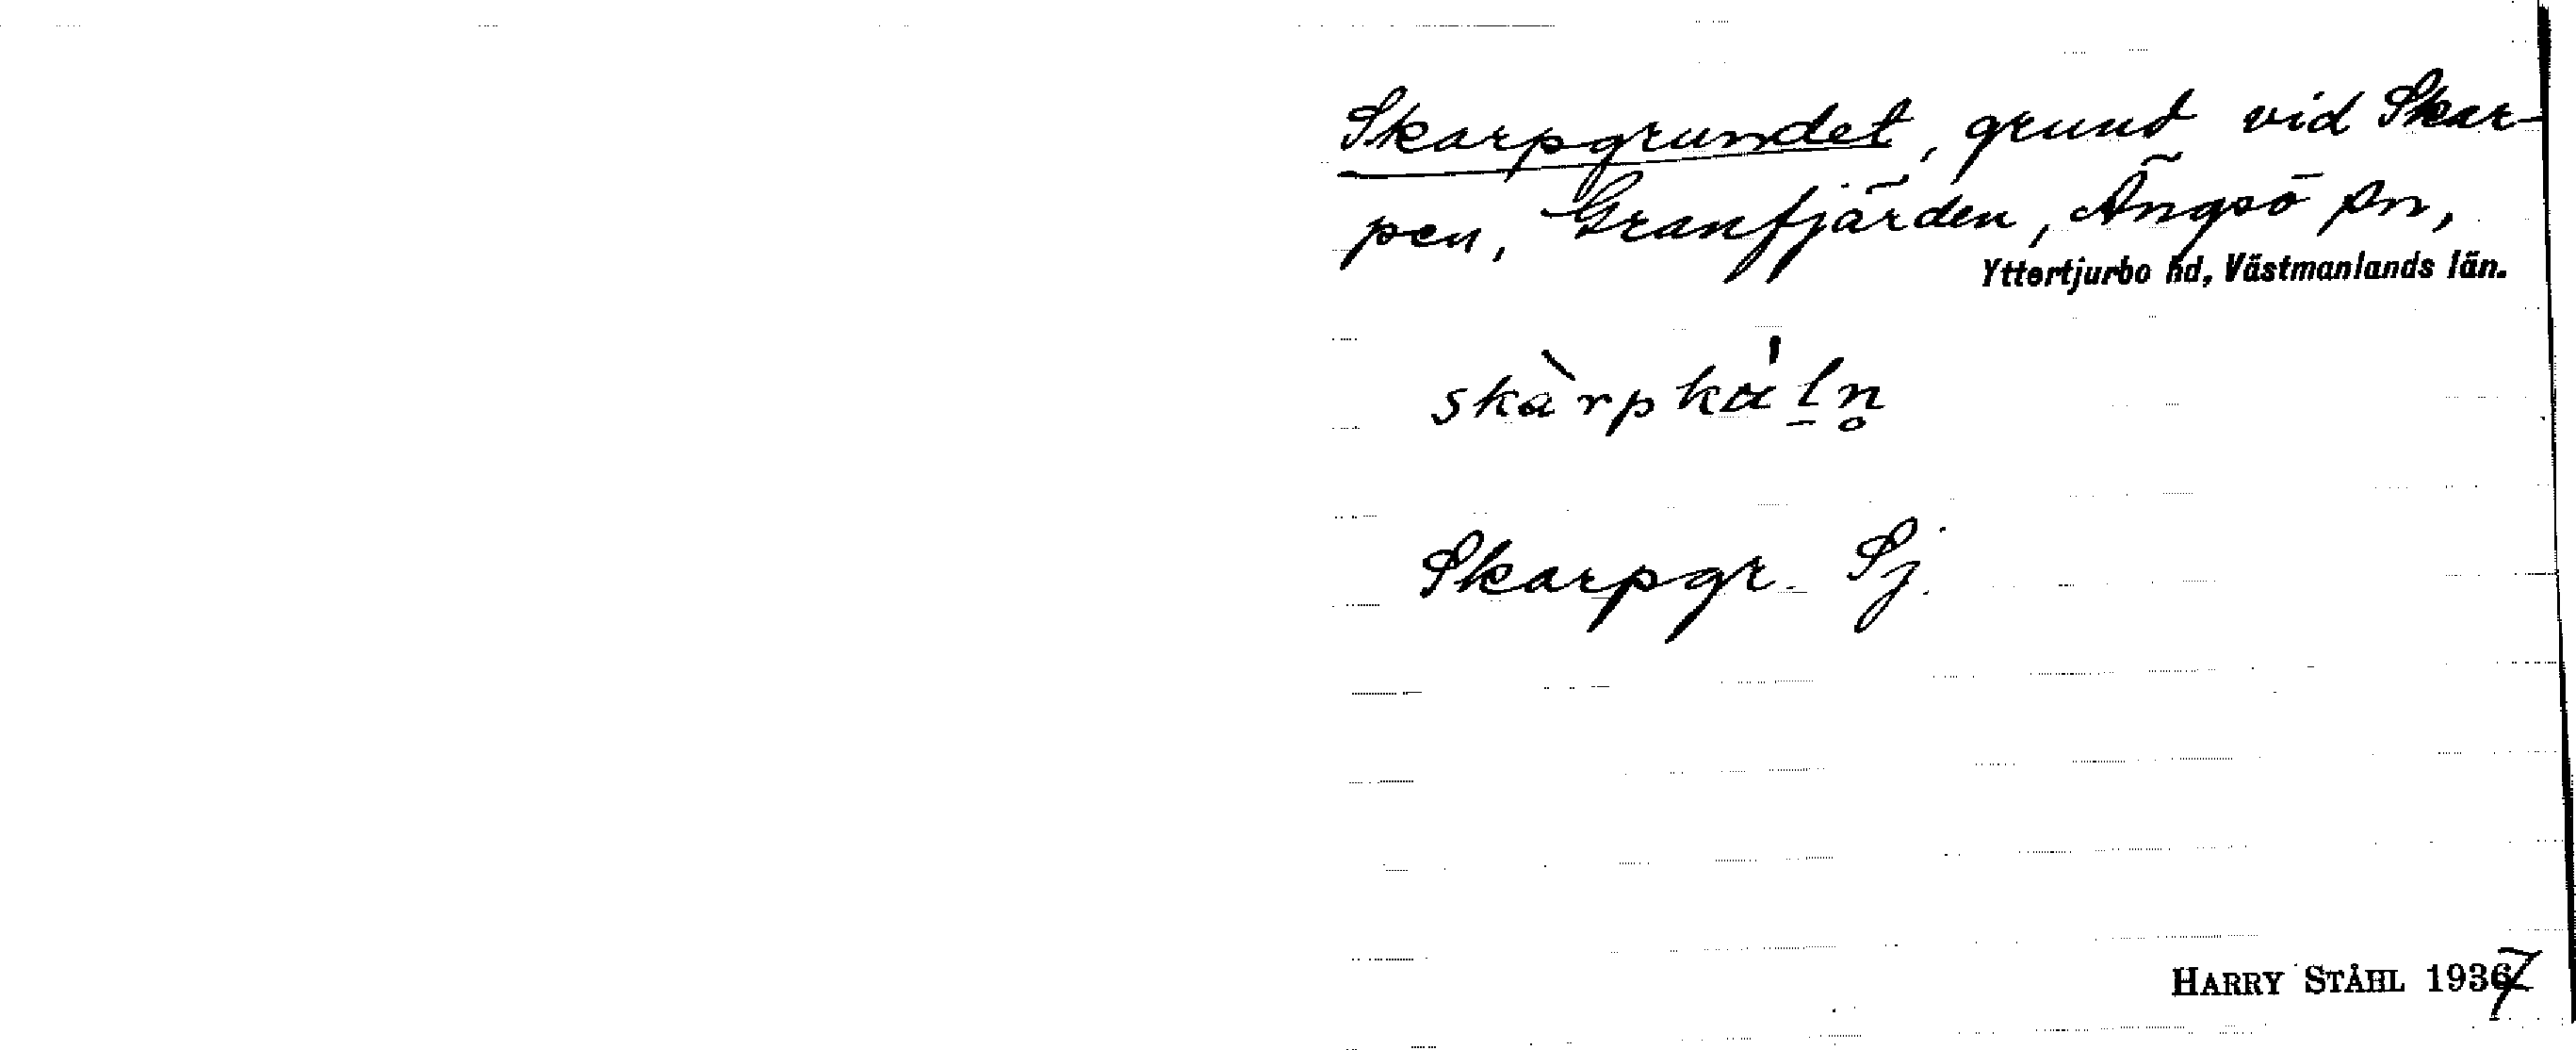 Skarpgrundet, grund vid Skar-
pen, Granfjärden, Ängsö sn,
Yttertjurbo hd, Västmanlands län.
skàrpkáḻn̥
Skarpgr. Sj.
HARRY STÅHL 1937